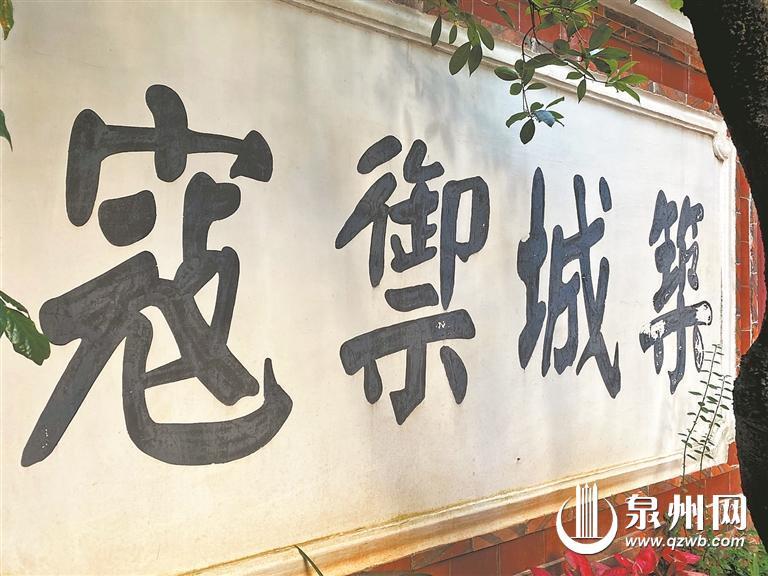 築城禦寇
泉州网
www.qzwb.com